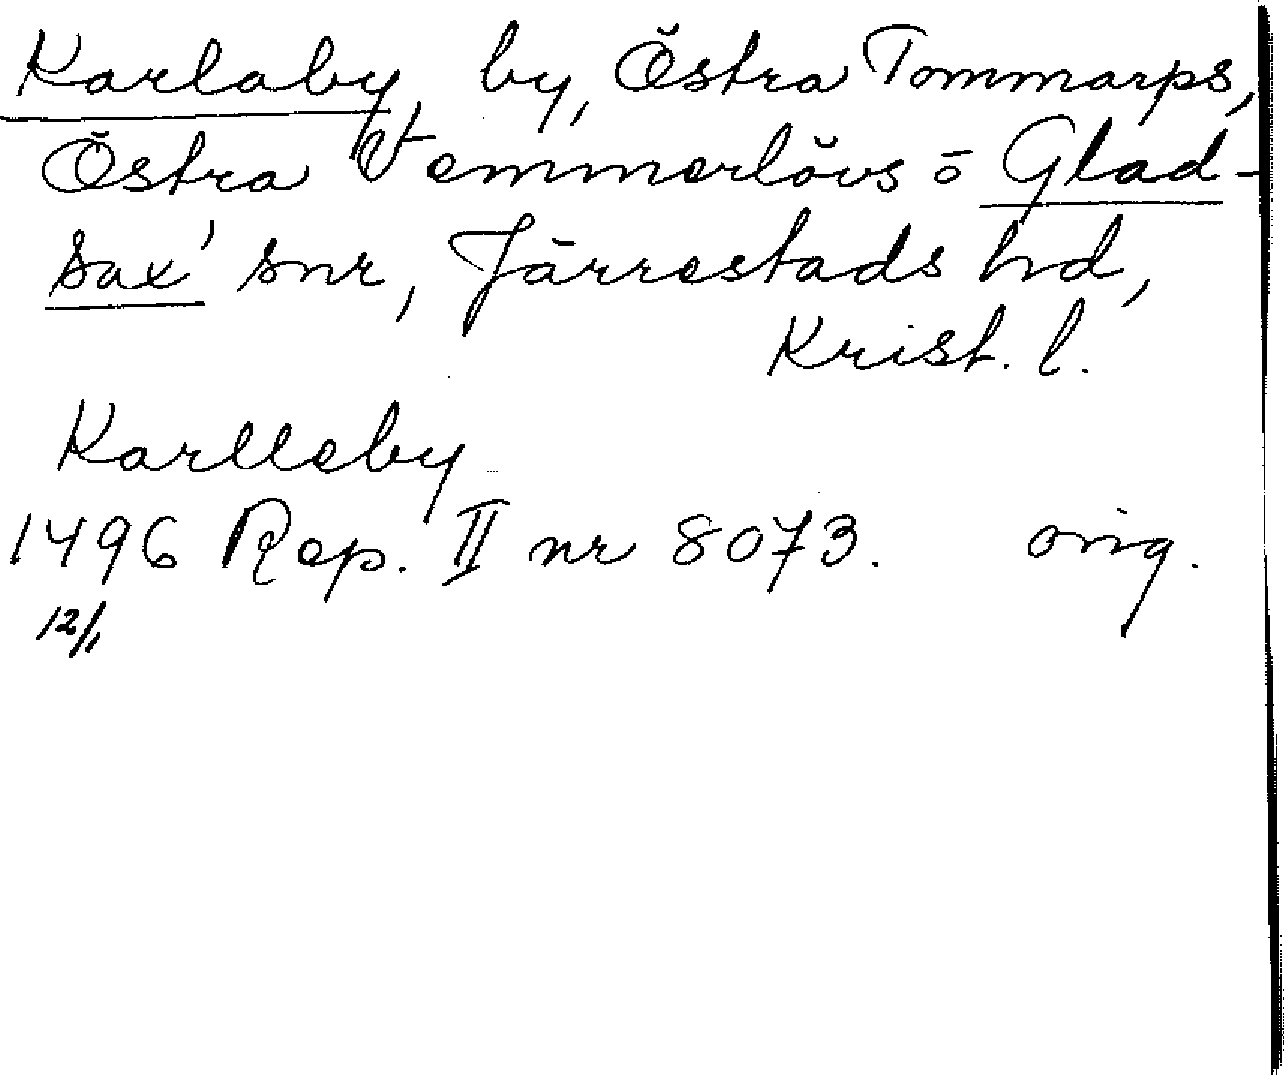 Karlaby, by, Östra Tommarps,
Östra Vemmerlövs o Glad-
sax' snr, Järrestads hd,
Krist. l.
Karlleby
1496 Rep. II nr 8073. orig.
12/1